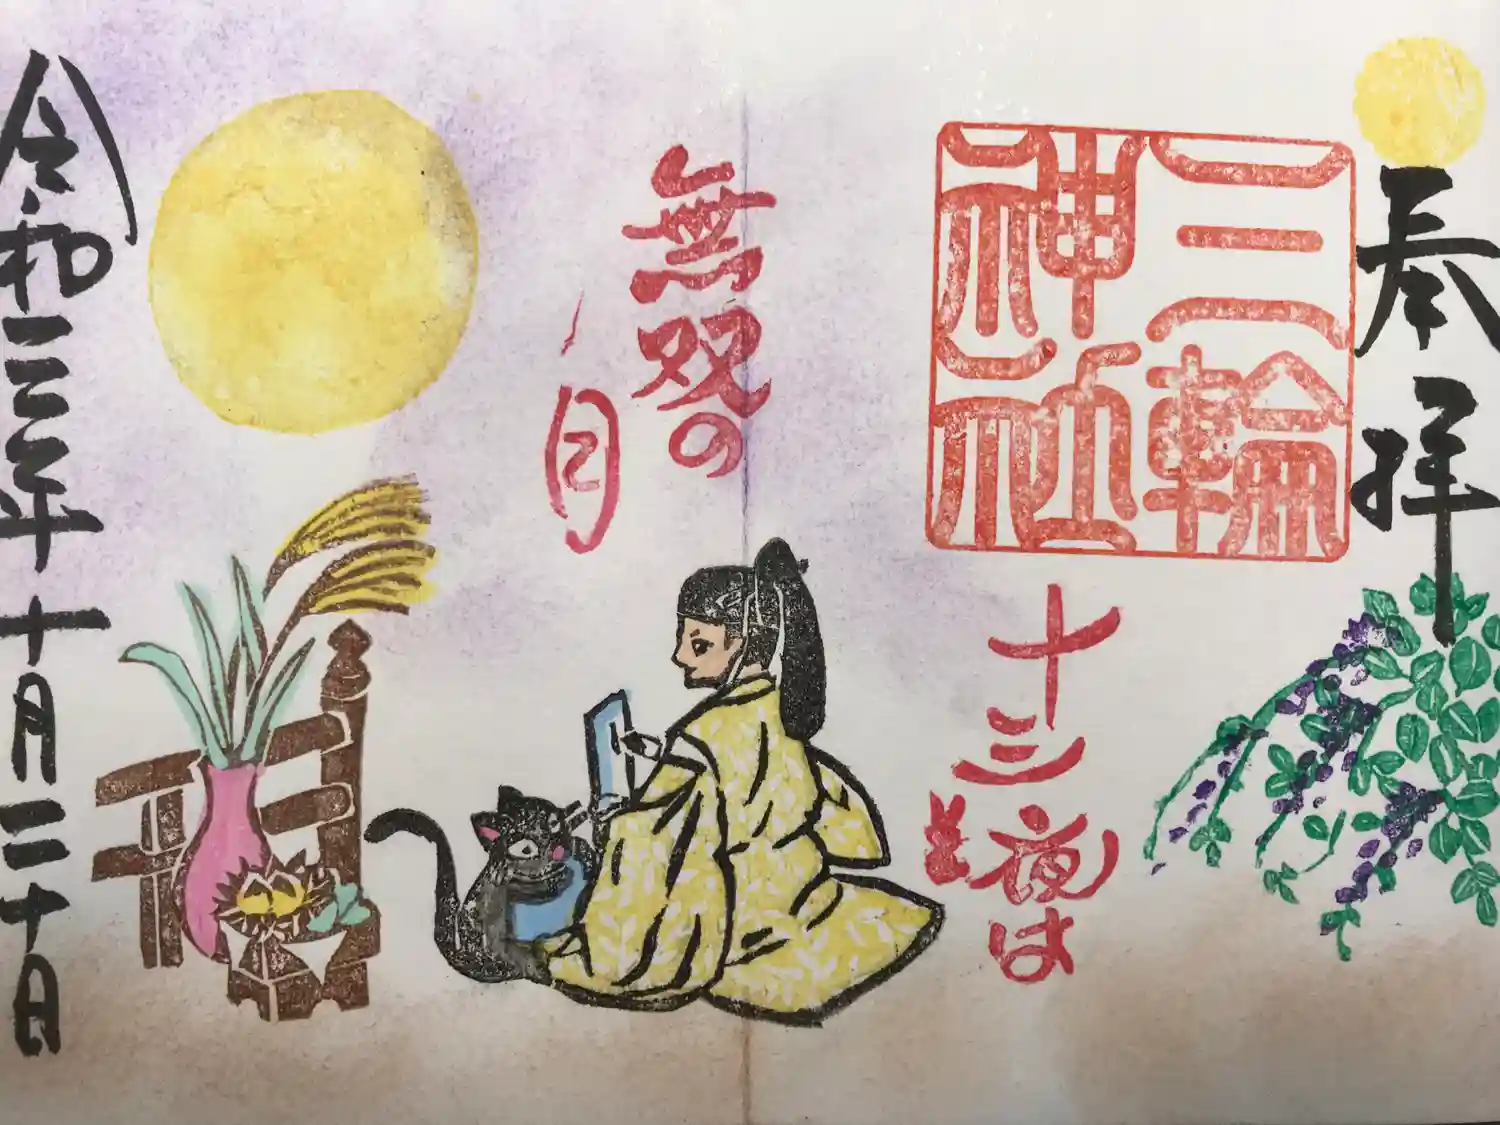 奉拝
三輪
神社
十三夜は
無双の
月
令和三年十月二十日